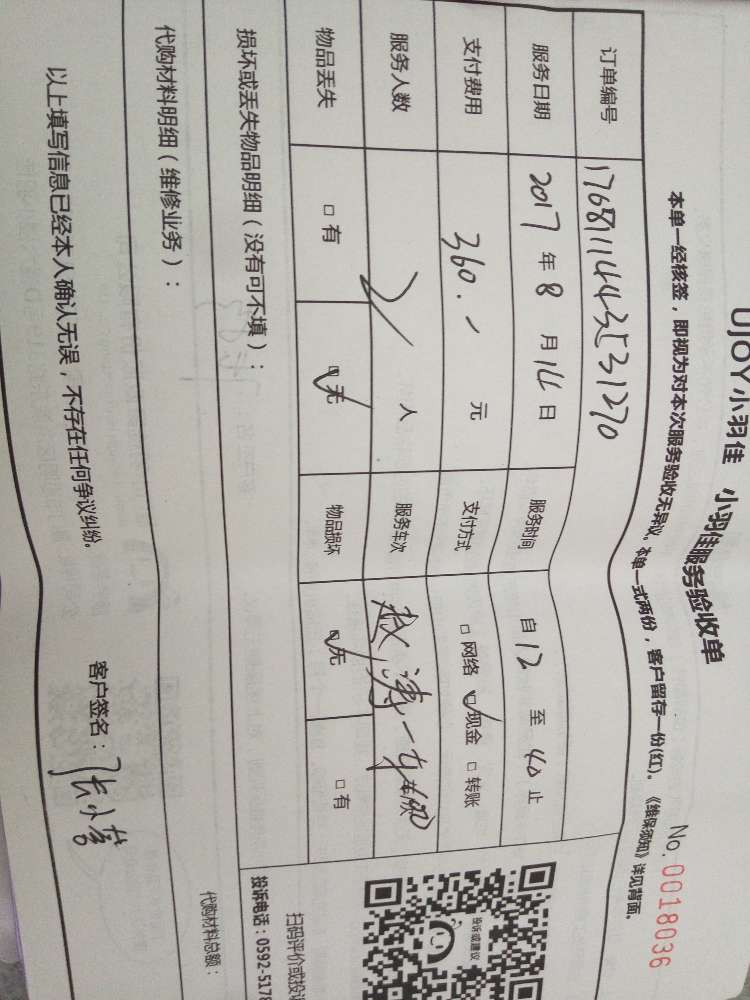 UJOY小羽佳 小羽佳服务验收单
No. 0018036
本单一经核签，即视为对本次服务验收无异议。本单一式两份，客户留存一份(红)。《维保须知》详见背面。
订单编号 17681114435531270
服务日期 2017年8月14日 服务时间 自12至40止
支付费用 360.- 元 支付方式 □网络 ☑现金 □转账
服务人数 2人 服务车次 一 车/次
物品丢失 □有 ☑无 物品损坏 ☑无 □有
损坏或丢失物品明细（没有可不填）：
代购材料明细（维修业务）：
代购材料总额：
以上填写信息已经本人确认无误，不存在任何争议纠纷。 客户签名：
投诉或建议
扫码评价或投诉
投诉电话：0592-5178